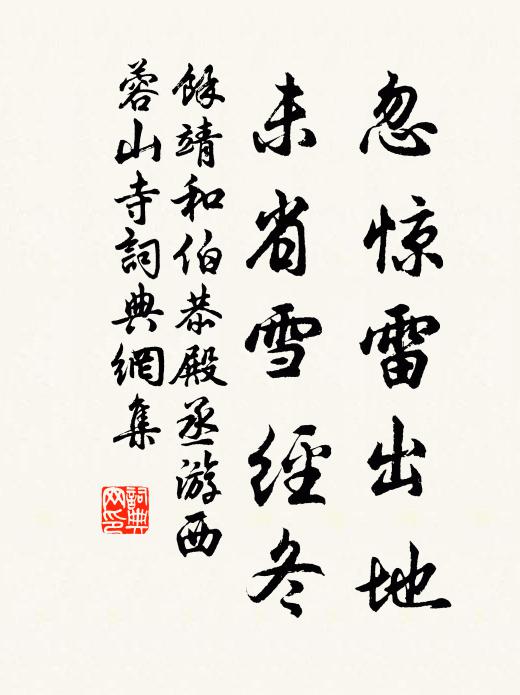 忽惊雷出地
未省雪經冬
餘靖和伯恭殿丞游西
蓉山寺詞典網集
詞典网印